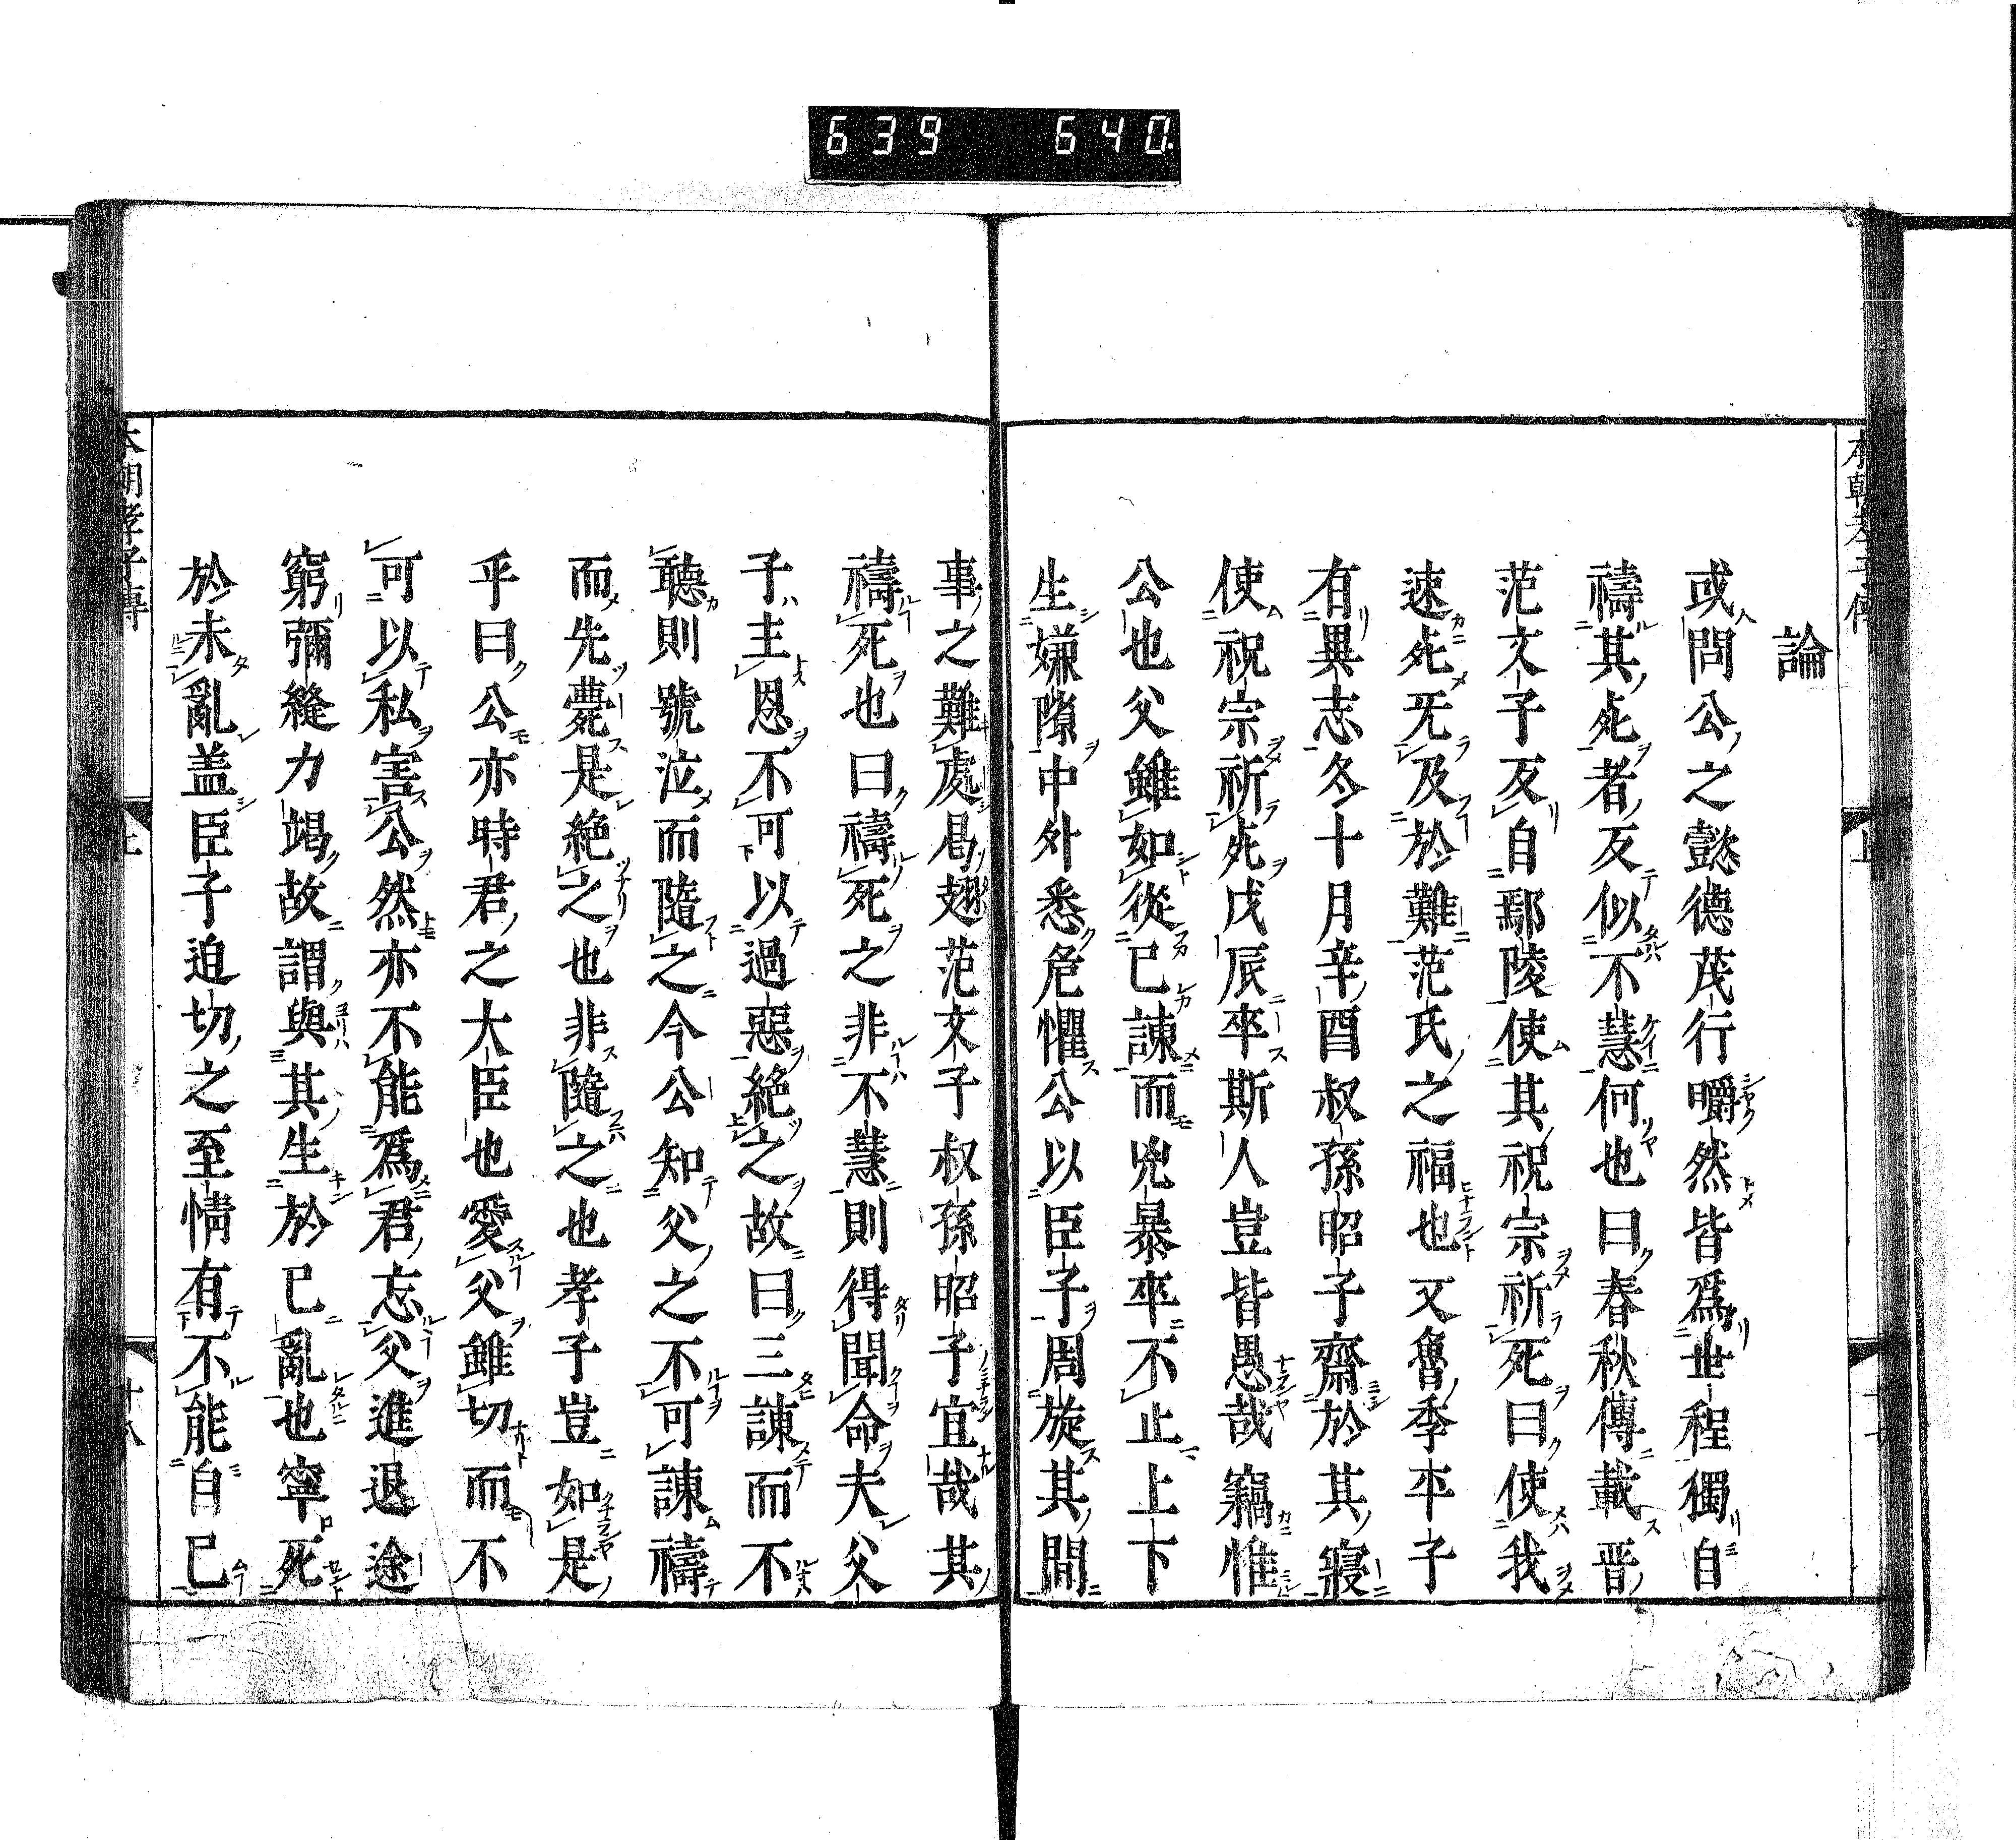 639 640
本朝孝子傳
論
或問公之懿德茂行皭然皆爲世程獨自
禱其死者反似不慧何也曰春秋傳載晋
范文子反自鄢陵使其祝宗祈死曰使我
速死无及於難范氏之福也又魯季平子
有異志冬十月辛酉叔孫昭子齋於其寢
使祝宗祈死戊辰卒斯人豈皆愚哉竊惟
公也父雖如從己諫而兇暴卒不止上下
生嫌隙中外悉危懼公以臣子周旋其間
事之難處曷趐范文子叔孫昭子宜哉其
禱死也曰禱死之非不慧則得聞命夫父
子主恩不可以過惡絶之故曰三諫而不
聽則號泣而隨之今公知父之不可諫禱
而先薨是絶之也非隨之也孝子豈如是
乎曰公亦時君之大臣也愛父雖切而不
可以私害公然亦不能爲君忘父進退途
窮彌縫力竭故謂與其生於已亂也寧死
於未亂盖臣子迫切之至情有不能自已
本朝孝子傳
十八